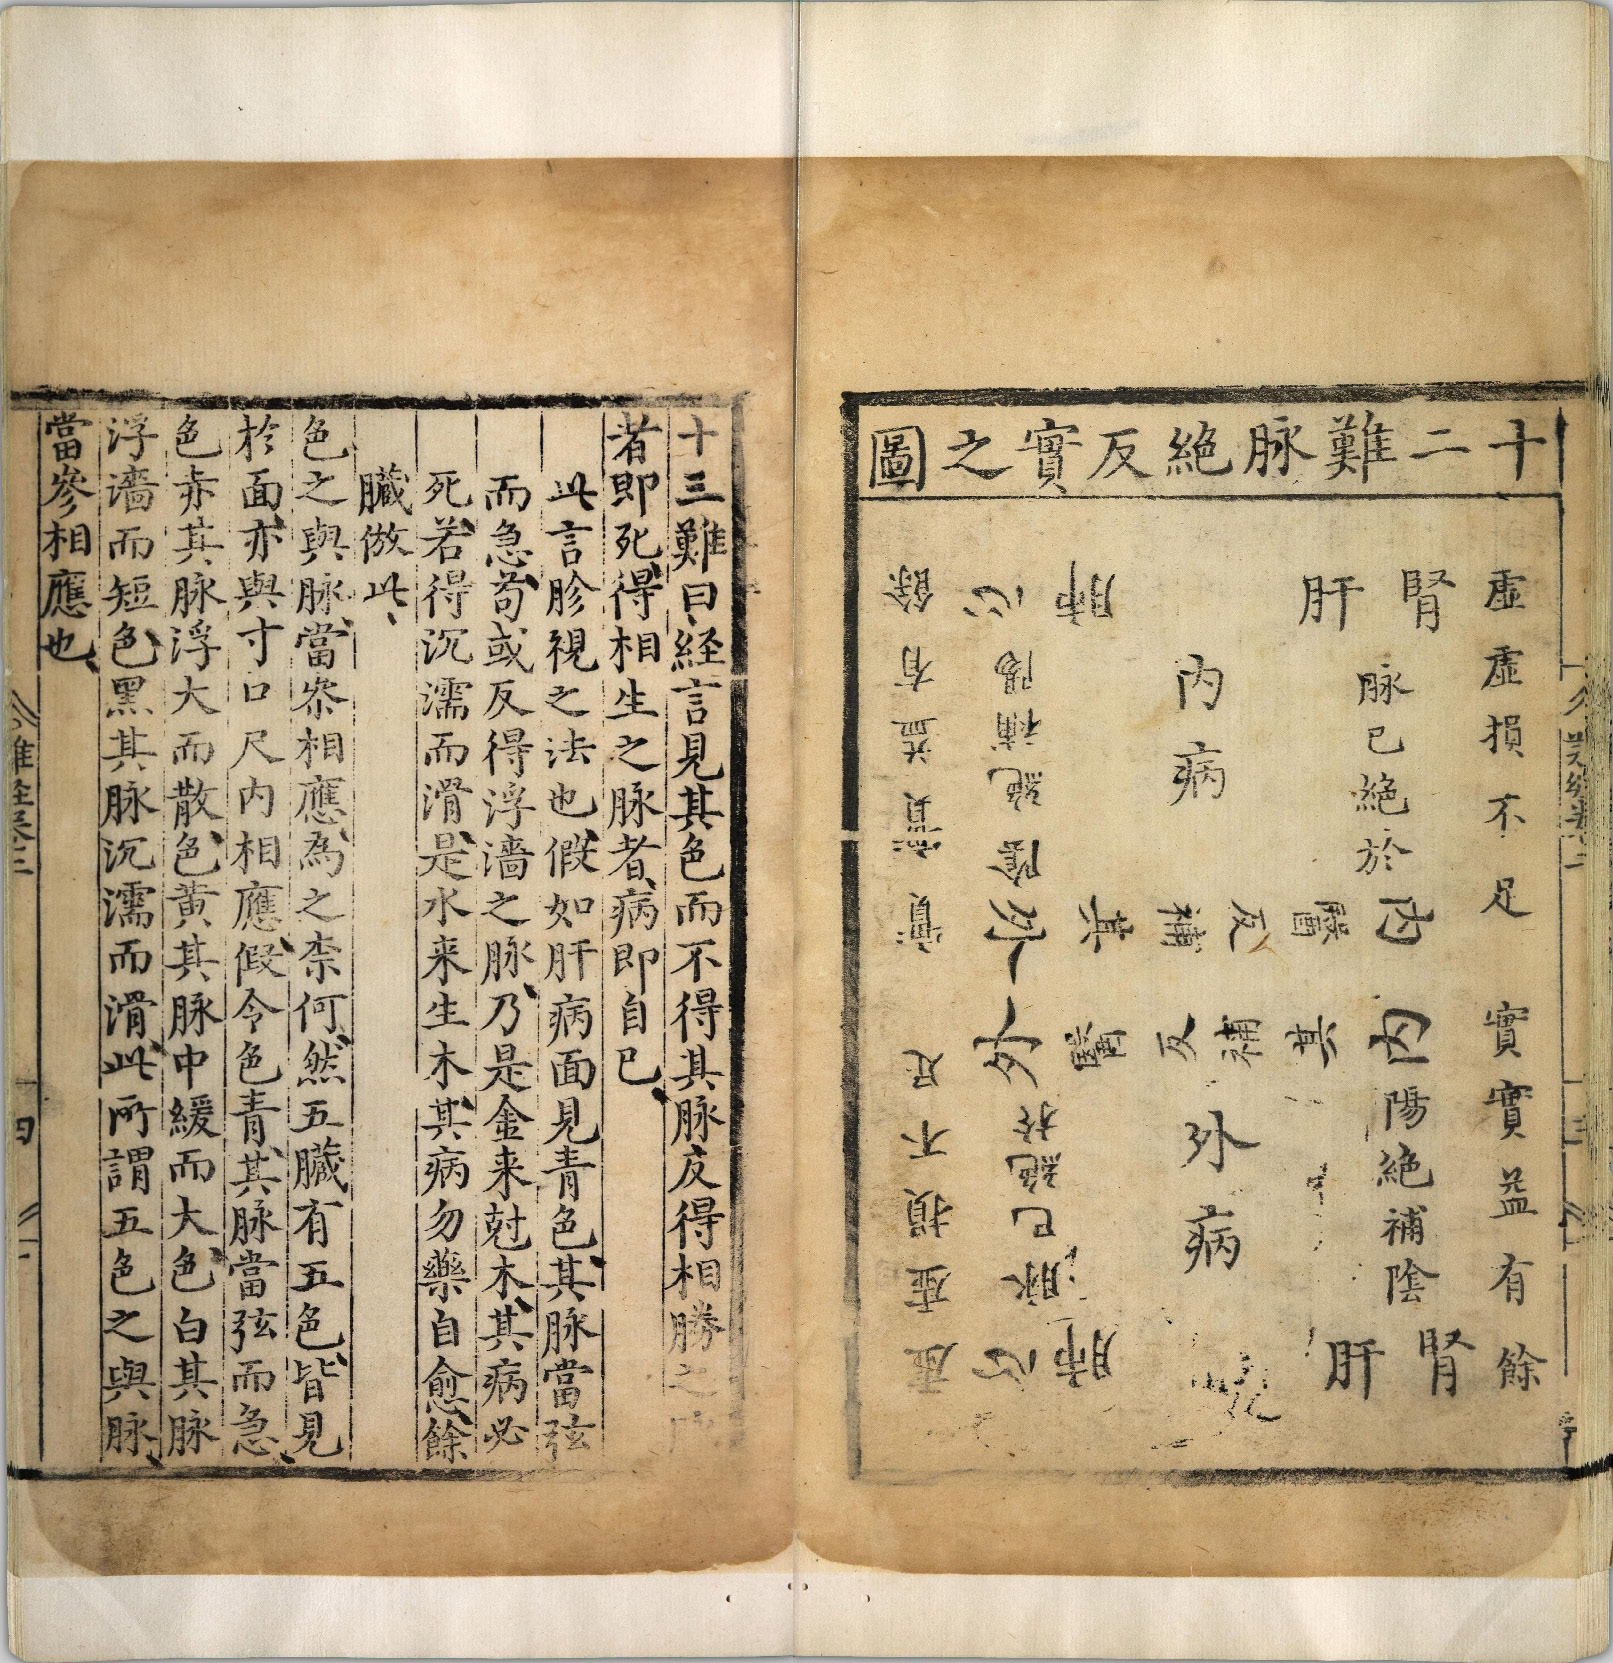 十二難脉絶反實之圖
虛虛損不足
實實益有餘
腎
肝
脉已絶於
内
内
陽絶補陰
腎
肝
内病
外病
醫反補其
其補反醫
外
外
肺
心
陽補絶陰
脉已絶於
肺
心
實實益有餘
虛虛損不足
十三難曰經言見其色而不得其脉反得相勝之
者即死得相生之脉者病即自已
此言胗視之法也假如肝病面見青色其脉當弦
而急苟或反得浮濇之脉乃是金来尅木其病必
死若得沉濡而滑是水来生木其病勿藥自愈餘
臟倣此
色之與脉當叅相應為之柰何然五臟有五色皆見
於面亦與寸口尺内相應假令色青其脉當弦而急
色赤其脉浮大而散色黄其脉中緩而大色白其脉
浮濇而短色黑其脉沉濡而滑此所謂五色之與脉
當參相應也
難經卷二
四